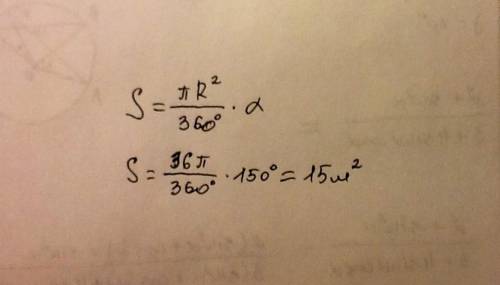 S = πR²/360° · α
S = 36π/360° · 150° = 15м²